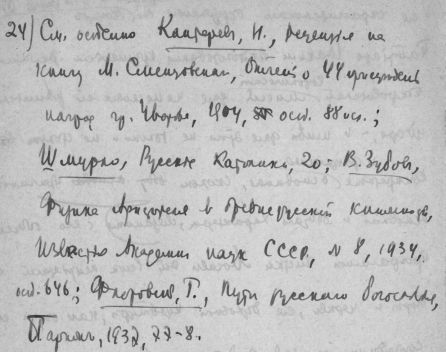 24) См. особенно Каптерев, Н., рецензия на
книгу М. Сменцовская, Отчет о 44 присужден
наград гр. Уварова, 1904, осб. 88 сл.;
Шмурло, Русские Католики, 20; В. Зубов,
Физика Аристотеля в древнерусской книжности,
Известия Академии наук СССР, N 8, 1934,
осб. 646; Флоровский, Г., Пути русского богословия,
Париж, 1937, 77-8.